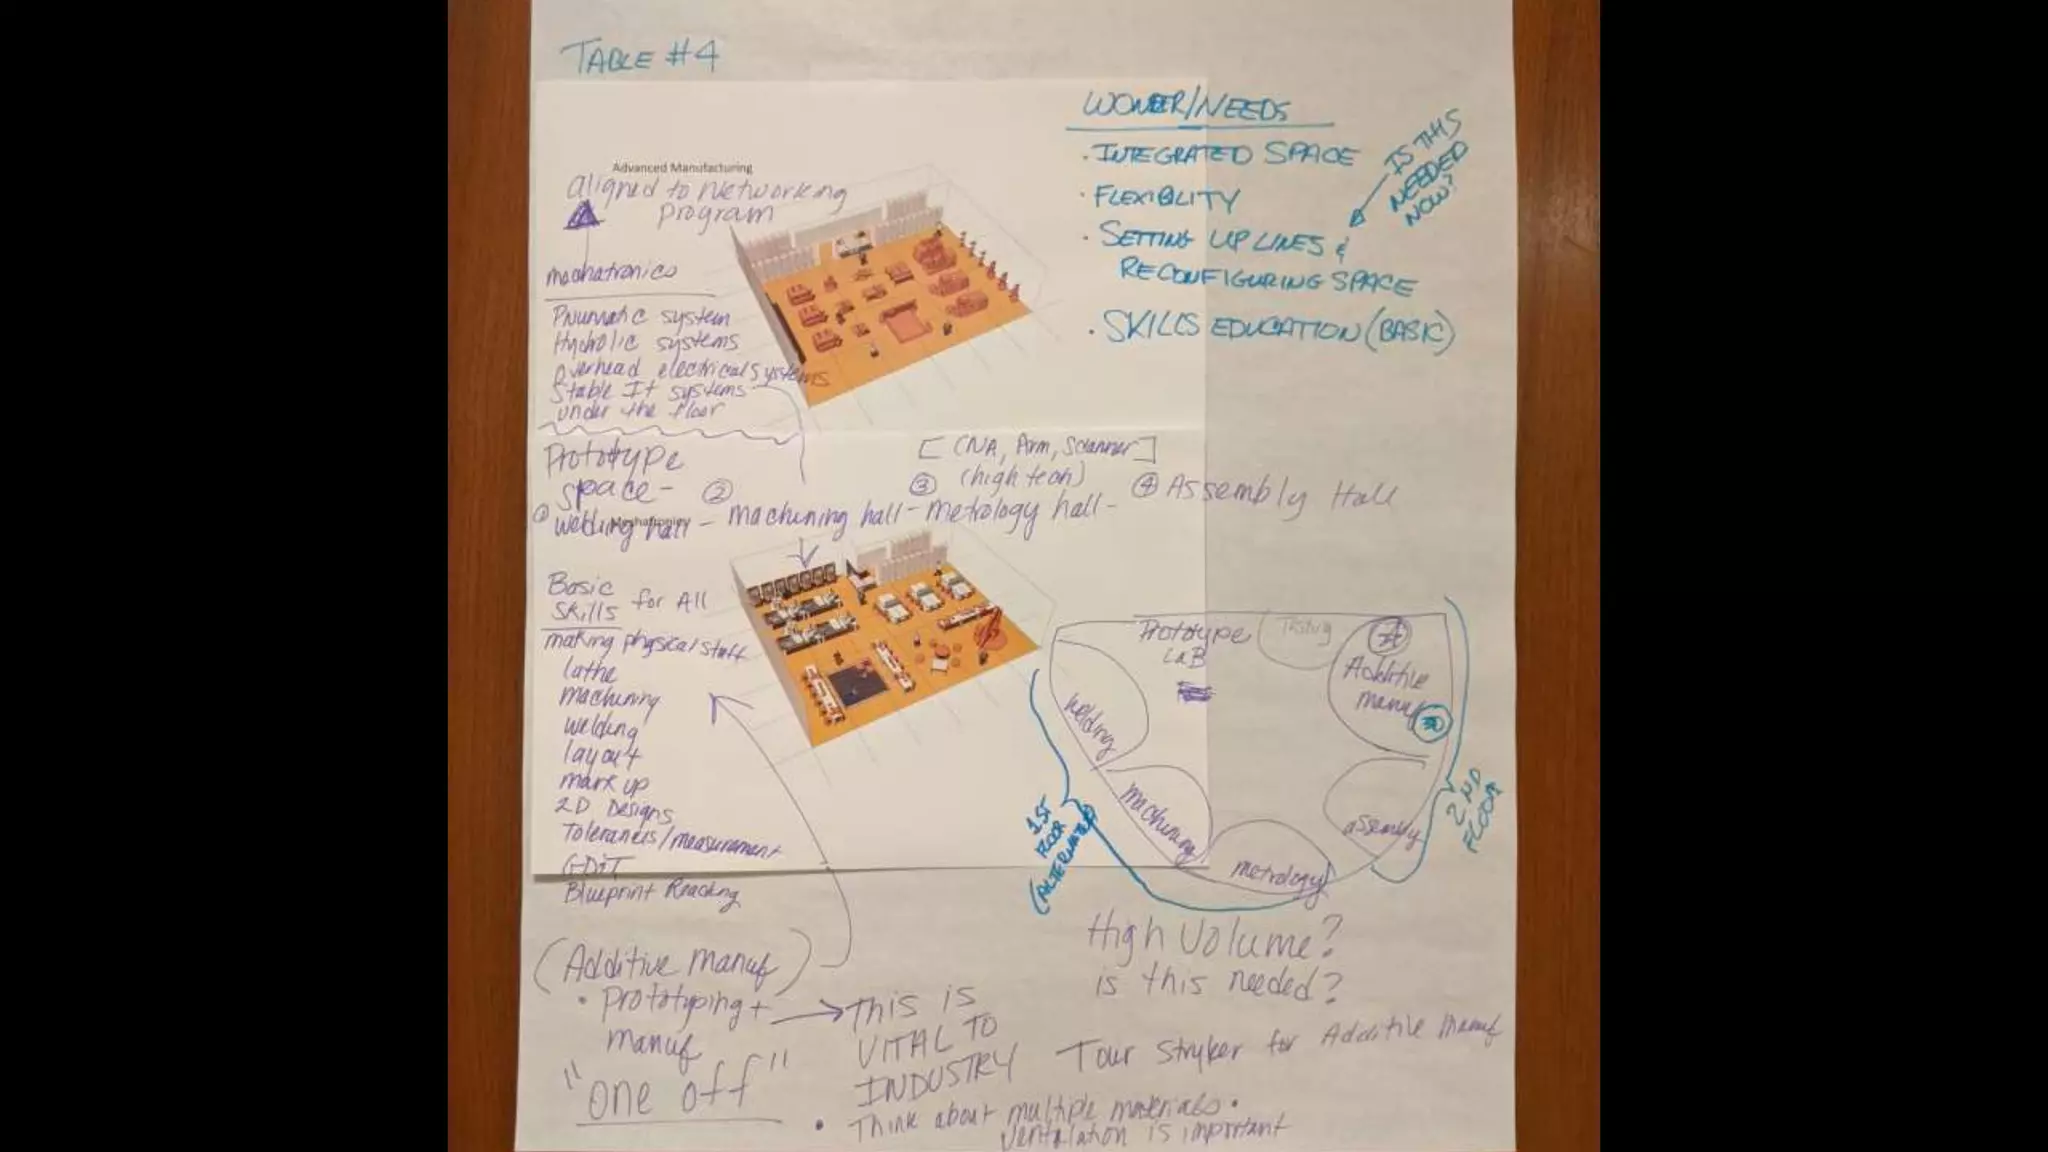 TABLE #4
WONDER/NEEDS
· INTEGRATED SPACE
· FLEXIBILITY
· SETTING UP LINES &
RECONFIGURING SPACE
· SKILLS EDUCATION (BASIC)
IS THIS
NEEDED
NOW?
Advanced Manufacturing
aligned to networking
program
mechatronics
Pnumatic system
Hydrolic systems
overhead electrical systems
Stable It systems
under the floor
Prototype
space-
① welding hall -
② machining hall -
[CNA, Arm, Scanner]
(high tech)
③ metrology hall -
④ Assembly Hall
Mechatronics
Basic
Skills for All
making physical stuff
lathe
machining
welding
layout
mark up
2D Designs
Tolerances/measurement
GD&T
Blueprint Reading
Prototype
LAB
Testing
Additive
manuf
welding
machining
metrology
assembly
1ST
FLOOR
(ALTERNATES)
2ND
FLOOR
(Additive manuf)
· prototyping +
manuf
"one off"
This is
VITAL TO
INDUSTRY
High Volume?
is this needed?
Tour Stryker for Additive Manuf
· Think about multiple materials ·
Ventalation is important